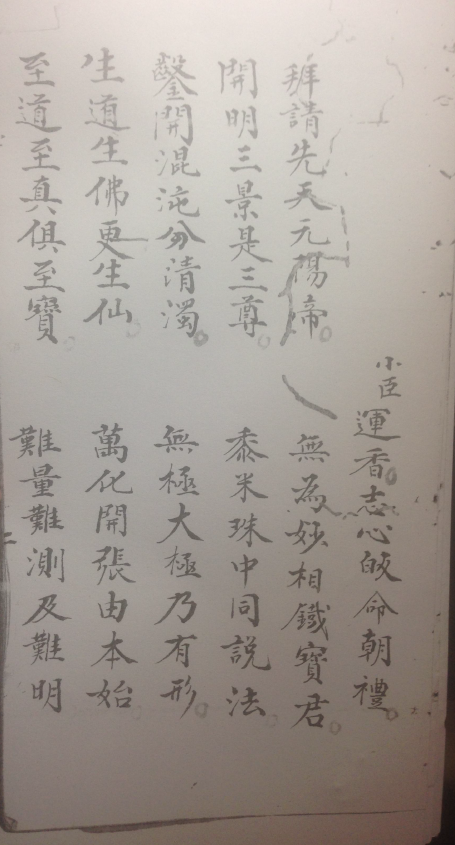 小臣運香。志心皈命朝禮。
拜請先天元陽帝。無為妙相鐵寶君。
開明三景是三尊。黍米珠中同說法。
鑿開混沌分清濁。無極大極乃有形。
生道生佛更生仙。萬化開張由本始。
至道至真俱至寶。難量難測及難明